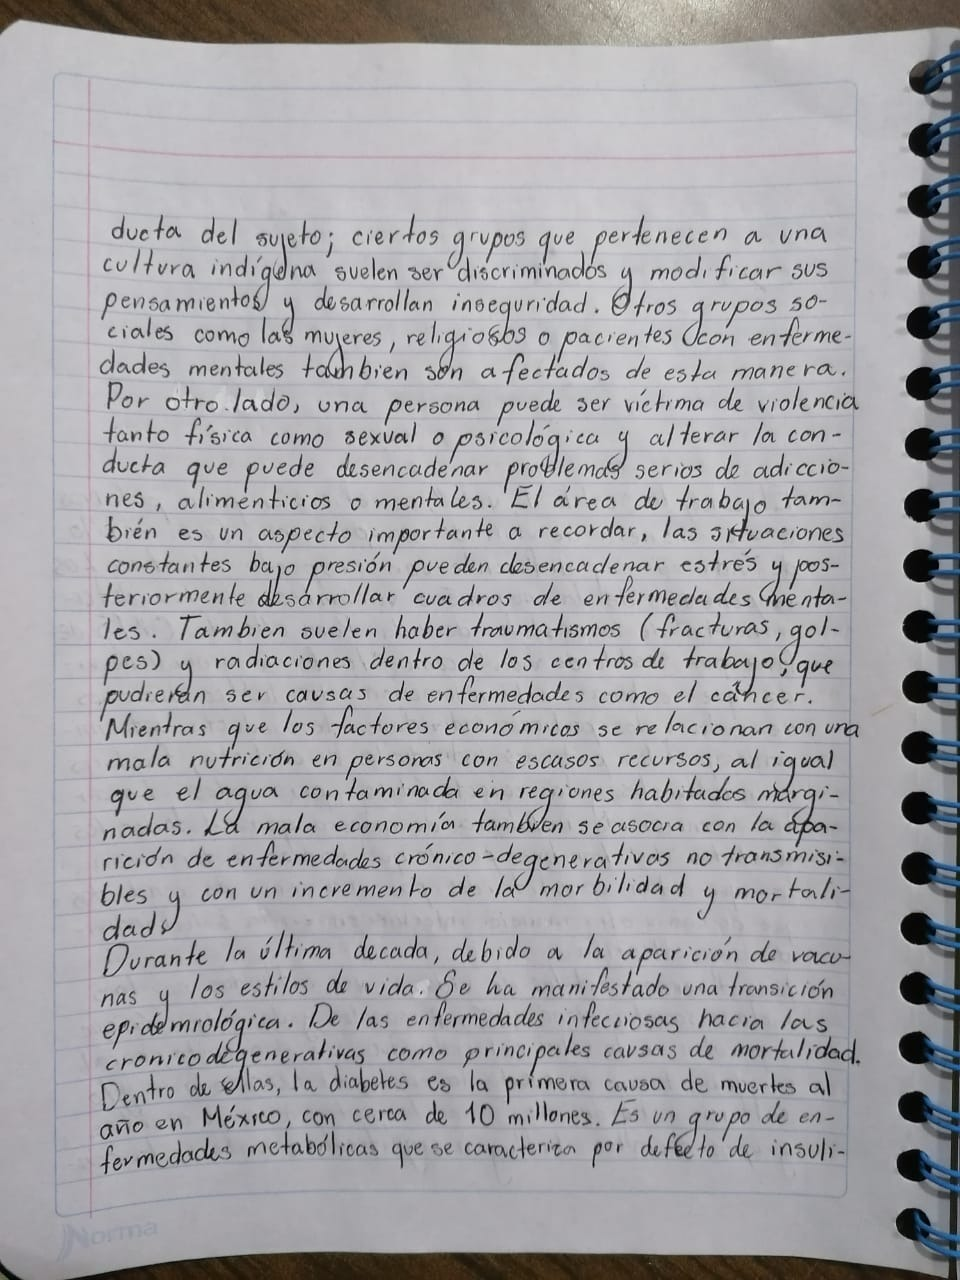 ducta del sujeto; ciertos grupos que pertenecen a una
cultura indígena suelen ser discriminados y modificar sus
pensamientos y desarrollan inseguridad. Otros grupos so-
ciales como las mujeres, religiosos o pacientes con enferme-
dades mentales tambien son afectados de esta manera.
Por otro lado, una persona puede ser víctima de violencia
tanto física como sexual o psicológica y alterar la con-
ducta que puede desencadenar problemas serios de adiccio-
nes, alimenticios o mentales. El área de trabajo tam-
bién es un aspecto importante a recordar, las situaciones
constantes bajo presión pueden desencadenar estrés y pos-
teriormente desarrollar cuadros de enfermedades menta-
les. Tambien suelen haber traumatismos (fracturas, gol-
pes) y radiaciones dentro de los centros de trabajo, que
pudieran ser causas de enfermedades como el cáncer.
Mientras que los factores económicos se relacionan con una
mala nutrición en personas con escasos recursos, al igual
que el agua contaminada en regiones habitados margi-
nadas. La mala economía tambien se asocia con la apa-
rición de enfermedades crónico-degenerativas no transmisi-
bles y con un incremento de la morbilidad y mortali-
dad.
Durante la última decada, debido a la aparición de vacu-
nas y los estilos de vida. Se ha manifestado una transición
epidemiológica. De las enfermedades infecciosas hacia las
cronicodegenerativas como principales causas de mortalidad.
Dentro de ellas, la diabetes es la primera causa de muertes al
año en México, con cerca de 10 millones. Es un grupo de en-
fermedades metabólicas que se caracteriza por defecto de insuli-
Norma